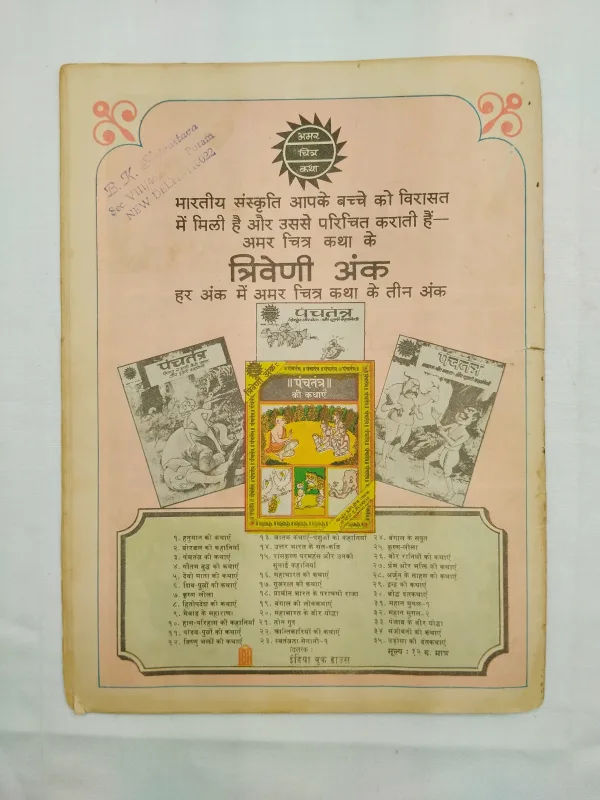 B. K.
Sec VIII
Puram
NEW DELHI
022
अमर
चित्र
कथा
भारतीय संस्कृति आपके बच्चे को विरासत
में मिली है और उससे परिचित कराती हैं—
अमर चित्र कथा के
त्रिवेणी अंक
हर अंक में अमर चित्र कथा के तीन अंक
पंचतंत्र
पंचतंत्र
पंचतंत्र
त्रिवेणी अंक
॥पंचतंत्र॥
की कथाएँ
१. हनुमान की कथाएँ
२. बीरबल की कहानियाँ
३. पंचतंत्र की कथाएँ
४. गौतम बुद्ध की कथाएँ
५. देवी माता की कथाएँ
६. शिव-पुत्रों की कथाएँ
७. कृष्ण लीला
८. हितोपदेश की कथाएँ
९. मेवाड़ के महाराणा
१०. हास-परिहास की कहानियाँ
११. पांडव-पुत्रों की कथाएँ
१२. विष्णु भक्तों की कथाएँ
१३. जातक कथाएँ-पशुओं की कहानियाँ
१४. उत्तर भारत के संत-कवि
१५. रामकृष्ण परमहंस और उनकी
सुनाई कहानियाँ
१६. महाभारत की कथाएँ
१७. गुजरात की कथाएँ
१८. प्राचीन भारत के पराक्रमी राजा
१९. बंगाल की लोककथाएँ
२०. महाभारत के वीर योद्धा
२१. तीन गुरु
२२. क्रान्तिकारियों की कथाएँ
२३. स्वतंत्रता-सेनानी-१
२४. बंगाल के सपूत
२५. कृष्ण-लीला
२६. वीर रानियों की कथाएँ
२७. प्रेम और भक्ति की कथाएँ
२८. अर्जुन के साहस की कथाएँ
२९. इन्द्र की कथाएँ
३०. बौद्ध दंतकथाएँ
३१. महान मुग़ल-१
३२. महान मुग़ल-२
३३. पंजाब के वीर योद्धा
३४. संजीवनी की कथाएँ
३५. उड़ीसा की दंतकथाएँ
मूल्य : १२ रु. मात्र
वितरक :
इंडिया बुक हाउस